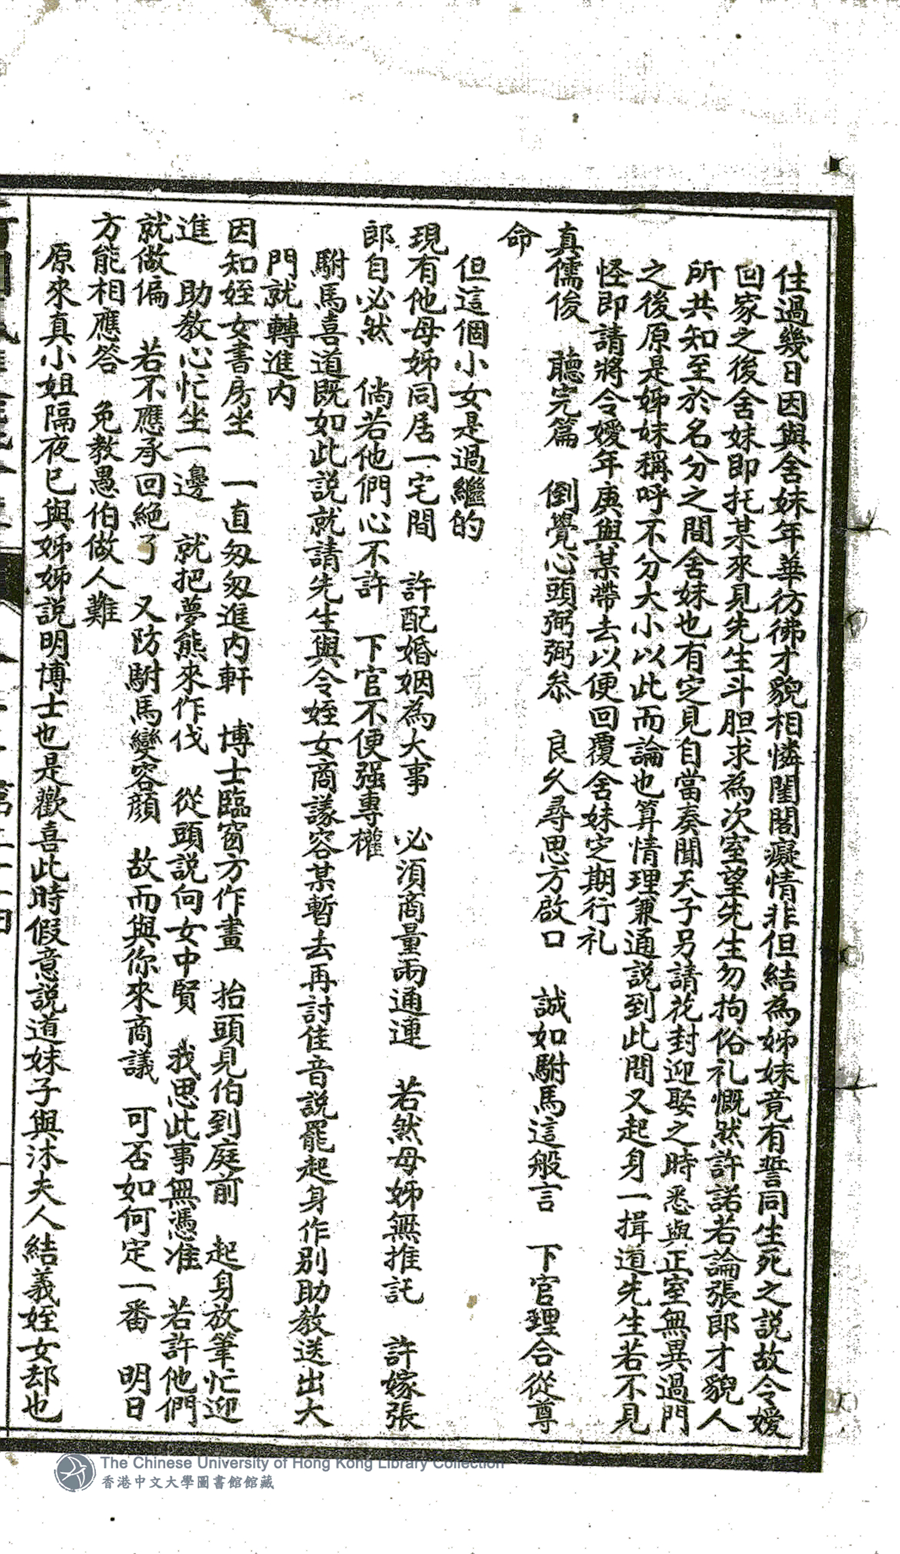 住過幾日因與舍妹年華彷彿才貌相憐閨閣癡情非但結為姊妹竟有誓同生死之説故令嬡
回家之後舍妹即托某來見先生斗胆求為次室望先生勿拘俗礼慨然許諾若論張郎才貌人
所共知至於名分之間舍妹也有定見自當奏聞天子另請花封迎娶之時悉與正室無異過門
之後原是姊妹稱呼不分大小以此而論也算情理兼通説到此間又起身一揖道先生若不見
怪即請將令嬡年庚與某帶去以便回覆舍妹定期行礼
真儒俊 聽完篇 倒覺心頭弼弼叅 良久尋思方啟口 誠如駙馬這般言 下官理合從尊
命
但這個小女是過繼的
現有他母姊同居一宅間 許配婚姻為大事 必須商量兩通連 若然母姊無推託 許嫁張
郎自必然 倘若他們心不許 下官不便强專權
駙馬喜道既如此説就請先生與令姪女商議容某暫去再討佳音説罷起身作别助教送出大
門就轉進内
因知姪女書房坐 一直匆匆進内軒 博士臨窗方作畫 抬頭見伯到庭前 起身放筆忙迎
進 助教心忙坐一邊 就把夢熊來作伐 從頭説向女中賢 我思此事無憑准 若許他們
就做偏 若不應承回絶了 又防駙馬變容顔 故而與你來商議 可否如何定一番 明日
方能相應答 免教愚伯做人難
原來真小姐隔夜已與姊姊説明博士也是歡喜此時假意説道妹子與沐夫人結義姪女却也
The Chinese University of Hong Kong Library Collection
香港中文大學圖書館館藏